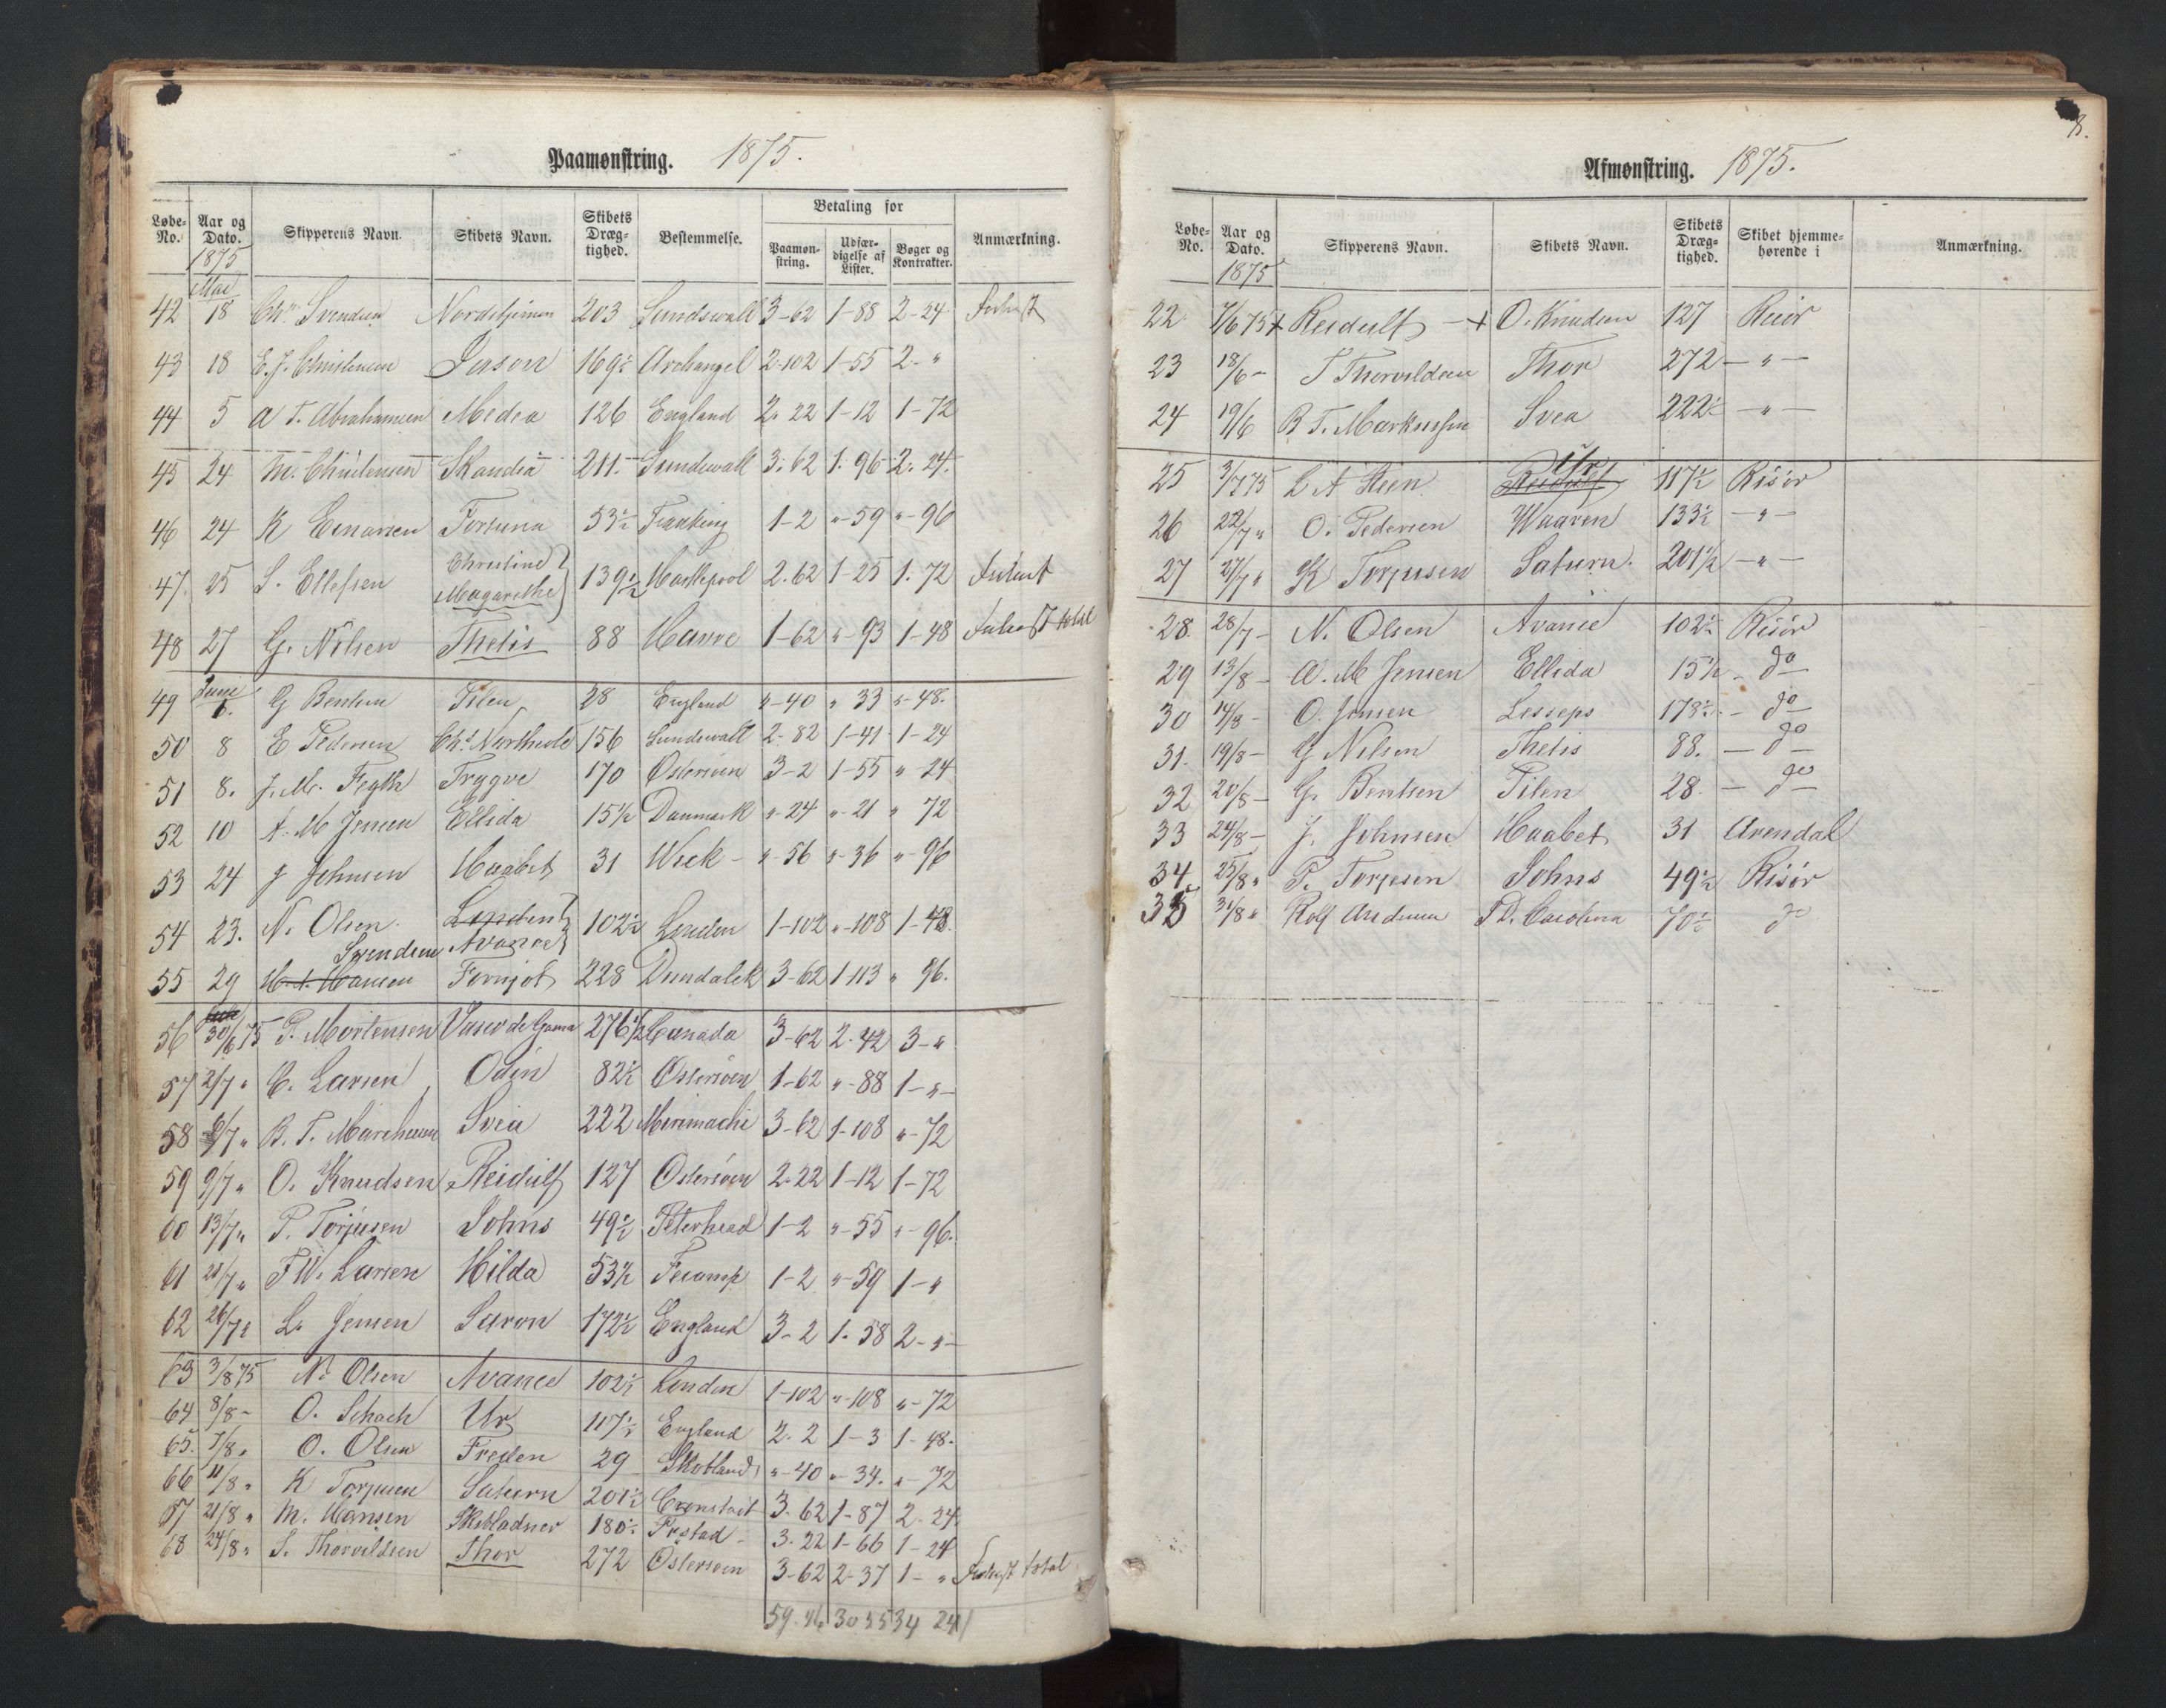 Paamønstring. 1875.
Løbe-No. | Aar og Dato. | Skipperens Navn. | Skibets Navn. | Skibets Dræg-tighed. | Bestemmelse. | Betaling for | Paamøn-string. | Udfær-digelse af Lister. | Bøger og Kontrakter. | Anmærkning.
1875
Mai
42 18 Chr. Svendsen Nordstjernen 203 Sundswall 3-62 1-88 2-24 Forhyrt
43 18 E. J. Christensen Jason 169½ Archangel 2-102 1-55 2-"
44 5 A T. Abrahamsen Medea 126 England 2-22 1-12 1-72
45 24 M. Christensen Skandia 211 Sundswall 3-62 1-96 2-24
46 24 K Einarsen Fortuna 53½ 1-2 "-59 "-96
47 25 S. Ellefsen Christine Magarethe 139½ Hartlepool 2-62 1-25 1-72
48 27 G. Nilsen Thetis 88 Havre 1-62 "-93 1-48 total
Juni
49 6. G Bentsen Pilen 28 England "-40 "33 "-48.
50 8 E Pedersen 156 Sundswall 2-82 1-41 1-24
51 8. J. M. Fegth Trygve 170 Østersøen 3-2 1-55 "-24
52 10 A. M Jensen Ellida 15½ Danmark "-24 "-21 " 72
53 24 J Johnsen Haabet 31 Wick "-56 "-36 "-96
54 23. N. Olsen London Avance 102½ London 1-102 "-108 1-48.
Svendsen
55 29 H. A. Hansen Fornjot 228 Dundalek 3-62 1-113 " 96.
56 30/6 75 P. Mortensen Vasco de Gama 276½ Canada 3-62 2-42 3-"
57 2/7 " C. Larsen Odin 82½ Østersøen 1-62 "-88 1-"
58 6/7 " B. T. Marchussen Svea 222 Mirimachi 3-62 1-108 "-72
59 9/7 " O. Knudsen Reidulf 127 Østersøen 2-22 1-12 1-72
60 13/7 " P. Torjusen Johns 49½ Peterhead 1-2 "-55 "-96.
61 21/7 " F W. Larsen Hilda 53½ Fecamp 1-2 "-59 1-"
62 26/7 " L. Jensen Saron 172½ England 3-2 1-58 2-"
63 3/8 75 N. Olsen Avance 102½ London 1-102 "-108 "-72
64 8/8 - O. Schach Ur 117½ England 2-2 1-3 1-48.
65. 7/8 " O. Olsen Freden 29 Skotland "-40 "-34. "-72
66 11/8 " K Torjusen Saturn 201½ Cronstadt 3-62 1-87 2-24
67 21/8 " M. Hansen Skibladner 180½ Frstad 3-22 1-66 1-24
68 24/8 " S. Thorvildsen Thor 272 Østersøen 3-62 2-37 1-" Forlyst total
59-46 30 55 34 24
8.
Afmønstring. 1875.
Løbe-No. | Aar og Dato. | Skipperens Navn. | Skibets Navn. | Skibets Dræg-tighed. | Skibet hjemme-hørende i | Anmærkning.
1875
22 7/6 75 + Reidulf - + O. Knudsen 127 Risør
23 18/6 - T Thorvaldsen Thor 272 - " -
24 19/6 B T. Markussen Svea 222½ - " -
25 3/7 75 L A Steen Reidulf Ur 117½ Risør
26 22/7 " O. Pedersen Waaren 133½ - " -
27 27/7 " K Torjusen Saturn. 201½ - " -
28. 28/7 - N. Olsen Avance 102½ Risør
29 13/8 - A. M Jensen Ellida 15½ - do
30 14/8 - O. Jensen Lesseps 178½ - do
31. 19/8 - G Nilsen Thetis 88. - do
32 20/8 - G. Bentsen Pilen 28. - do
33 24/8 - J. Johnsen Haabet 31 Arendal
34 25/8 " P. Torjesen Johns 49½ Risør
35 31/8 " Rolf Andersen Carolina 70½ do